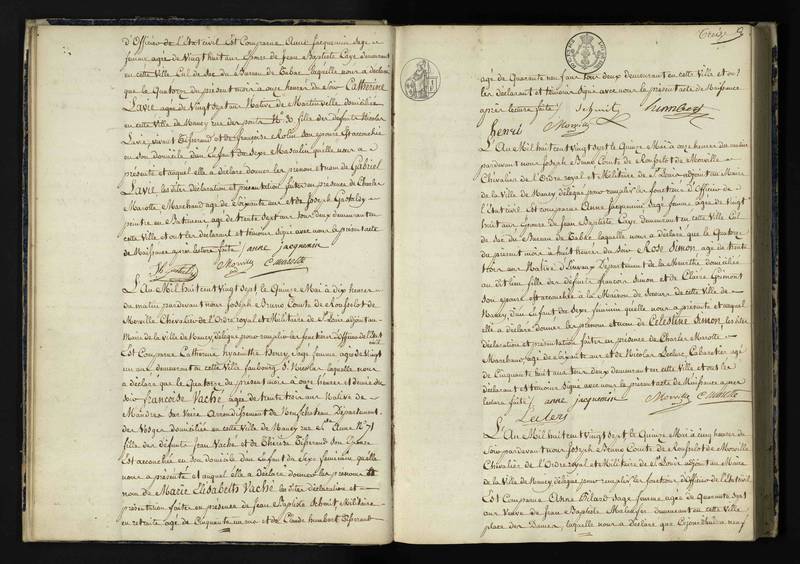 d'Officier de l'Etat civil Est Comparue Anne Jacquemin Sage
femme agée de Vingt huit ans Epouse de Jean Baptiste Caye demeurant
en cette Ville Cul de Sac du Bureau de Tabac laquelle nous a déclaré
que le Quatorze du présent mois à onze heures du Soir Catherine
Lavié agée de Vingt sept ans Native de domiciliée
en cette Ville de Nancy rue des ponts No 30 fille des défunts Nicolas
Lavié, vivant Tisserand et de françoise Rolin Son Epouse Est accouchée
en Son domicile d'un Enfant du Sexe Masculin quelle nous a
présenté et auquel elle a déclaré donner les prénom et nom de Gabriel
Lavié, les dites déclaration et présentation faites en présence de Charles
Marotte Marchand agé de Soixante ans et de Joseph
peintre en Bâtiment agé de trente sept ans tous deux demeurant en
cette Ville et ont les déclarante et témoins Signé avec nous le présent acte
de Naissance après lecture faite / anne jacquemin
Morville C Marotte
L'An Mil huit cent vingt sept le Quinze Mai à dix heures
du matin pardevant nous Joseph Bruno Comte de Rousselot de
Morville Chevalier de l'Ordre royal et Militaire de St Louis adjoint au
Maire de la Ville de Nancy délégué pour remplir les fonctions d'Officier de l'Etat
civil
Est Comparue Catherine hyacinthe henry, Sage femme agée de Vingt
un ans, demeurant en cette Ville faubourg St Nicolas, laquelle nous
a déclaré que le Quatorze du présent mois à onze heures et demie du
Soir françoise Vaché agée de trente trois ans Native de
Mandres sur Vaire Arrondissement de Neufchateau Département
des Vosges domiciliée en cette Ville de Nancy rue Ste Anne No 71
fille des défunts Jean Vaché et de Thérèse Tisserand son Epouse
Est accouchée en Son domicile d'un Enfant du Sexe féminin quelle
nous a présenté et auquel elle a déclaré donner les prénoms et
nom de Marie Elisabeth Vaché les dites déclaration et
présentation faites en présence de Jean Baptiste Schmit Militaire
en retraite agé de Cinquante un ans et de Claude humbert Tisserant
Treize
agé de Quarante neuf ans tous deux demeurant en cette Ville et ont
les déclarant et témoins Signé avec nous le présent acte de Naissance
après lecture faite / Schmit humbert
henri Morville
L'An Mil huit cent vingt sept le Quinze Mai à onze heures du matin
pardevant nous Joseph Bruno Comte de Rousselot de Morville
Chevalier de l'Ordre royal et Militaire de St Louis adjoint au Maire
de la Ville de Nancy délégué pour remplir les fonctions d'Officier de
l'Etat civil Est comparue Anne Jacquemin Sage femme agée de vingt
huit ans Epouse de Jean Baptiste Caye demeurant en cette Ville Cul
de Sac du Bureau de Tabac laquelle nous a déclaré que le Quatorze
du présent mois à huit heures du Soir Rose Simon agée de trente
trois ans Native d'Leuvray Département de la Meurthe domiciliée
au dit lieu fille des défunts françois Simon et de Claire Grimont
Son Epouse Est accouchée à la Maison de Secours de cette Ville de
Nancy, d'un Enfant du Sexe féminin quelle nous a présenté et auquel
elle a déclaré donner les prénom et nom de Célestine Simon, les dites
déclaration et présentation faites en présence de Charles Marotte
Marchand, agé de Soixante ans et de Nicolas Leclerc, Cabaretier agé
de Cinquante huit ans tous deux demeurant en cette Ville et ont les
déclarant et témoins Signé avec nous le présent acte de Naissance après
lecture faite / anne jacquemin Morville C Marotte
Leclerc
L'An Mil huit cent vingt sept le Quinze Mai à cinq heures du
Soir pardevant nous Joseph Bruno Comte de Rousselot de Morville
Chevalier de l'Ordre royal et Militaire de St Louis adjoint au Maire
de la Ville de Nancy délégué pour remplir les fonctions d'Officier de l'Etat civil
Est Comparue Anne Pilard Sage femme agée de Quarante Sept
ans Veuve de Jean Baptiste demeurant en cette Ville
place des Dames, laquelle nous a déclaré que Cejourd'hui à neuf